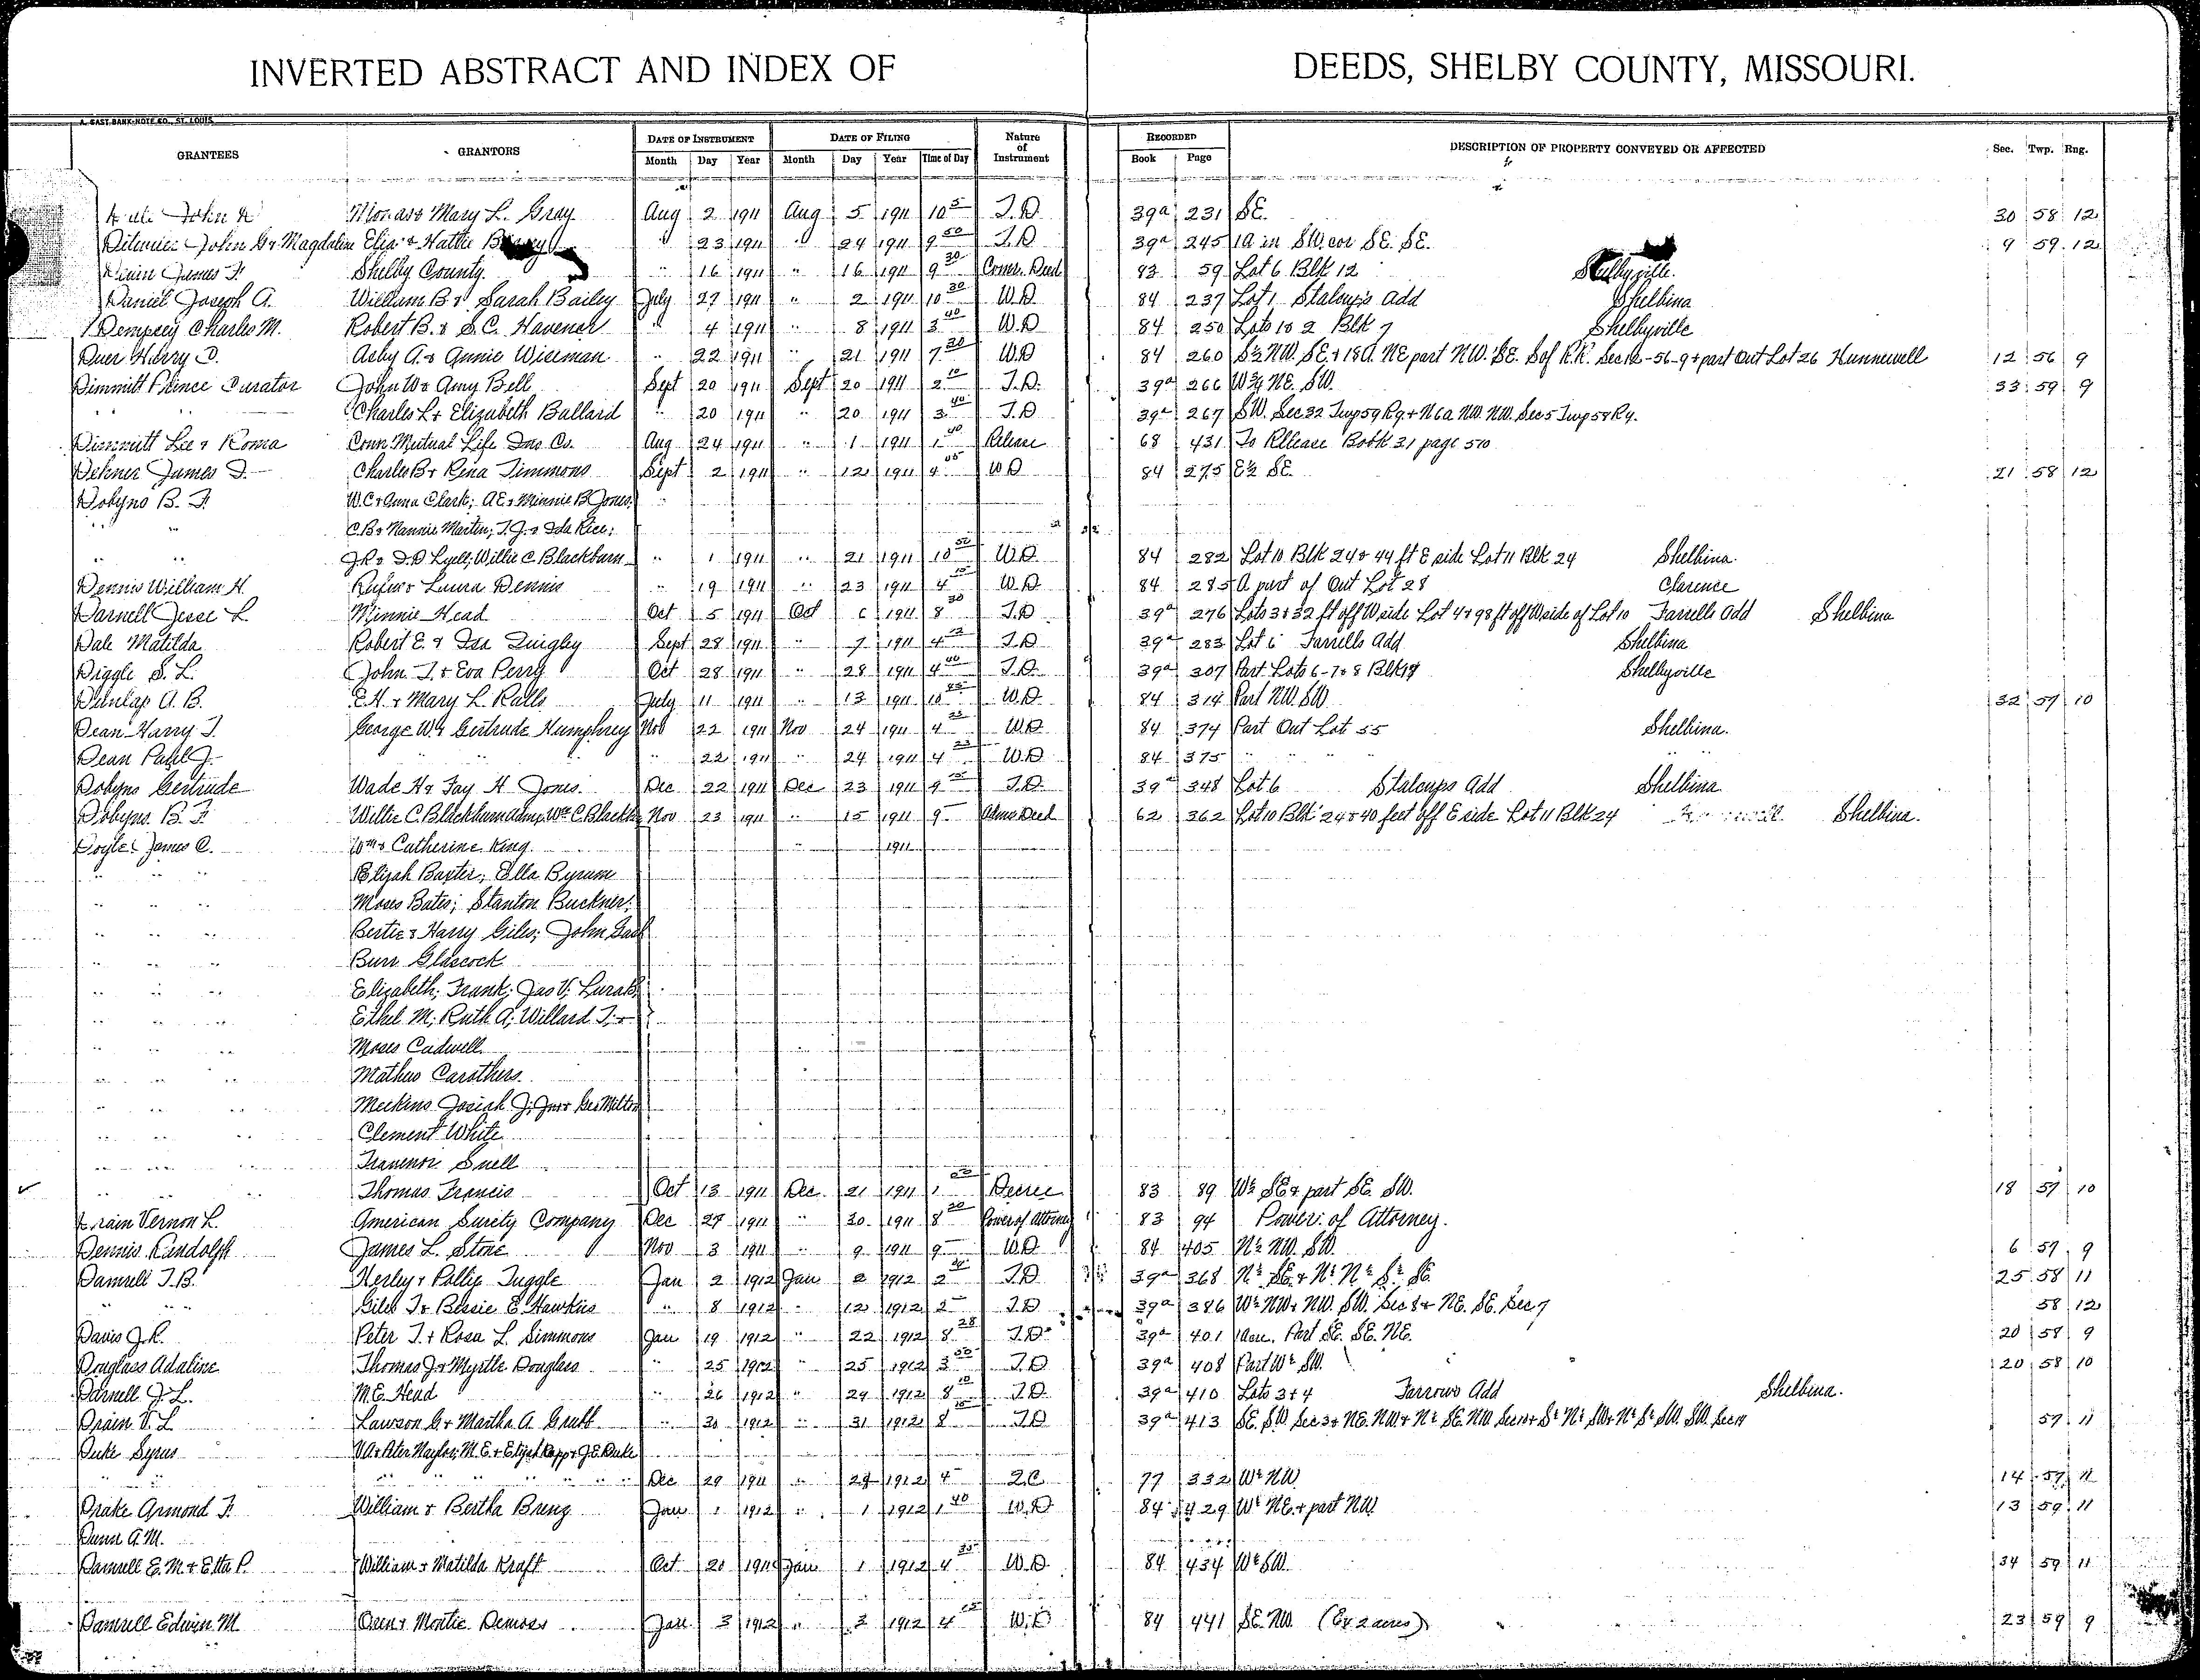 INVERTED ABSTRACT AND INDEX OF DEEDS, SHELBY COUNTY, MISSOURI.
A. GAST BANK-NOTE CO., ST. LOUIS.
GRANTEES GRANTORS DATE OF INSTRUMENT DATE OF FILING Nature of Instrument RECORDED DESCRIPTION OF PROPERTY CONVEYED OR AFFECTED Sec. Twp. Rng.
Month Day Year Month Day Year Time of Day Book Page
John Mary L. Gray Aug 2 1911 Aug 5 1911 10 5 T.D. 39a 231 SE. 30 58 12
John G & Magdaline & Hattie " 23 1911 " 24 1911 9 50 T.D 39a 245 1A in SW. cor SE. SE. 9 59 12
James F. Shelby County " 16 1911 " 16 1911 9 30 Comr. Deed 83 59 Lot 6 Blk 12 Shelbyville.
Daniel Joseph A. William B & Sarah Bailey July 27 1911 " 2 1911 10 30 W.D. 84 237 Lot 1 Stalcups Add Shelbina
Dempsey Charles M. Robert B. & S.C. Havener " 4 1911 " 8 1911 3 40 W.D 84 250 Lots 1 & 2 Blk 7 Shelbyville
Duer Harry C. Asby A. & Annie Wiseman " 22 1911 " 21 1911 7 30 W.D 84 260 S½ NW. SE. & 18A. NE part NW. SE. S of R.R. Sec 12-56-9 & part Out Lot 26 Hunnewell 12 56 9
Dimmitt Prince Curator John W & Amy Bell Sept 20 1911 Sept 20 1911 2 10 T.D. 39a 266 W¾ NE. SW. 33 59 9
" Charles L & Elizabeth Ballard " 20 1911 " 20 1911 3 40 T.D 39a 267 SW. Sec 32 Twp 59 R9 & N6a NW. NW. Sec 5 Twp 58 R9.
Dimmitt Lee & Roma Conn Mutual Life Ins. Co. Aug 24 1911 " 1 1911 1 40 Release 68 431 To Release Book 31 page 510
Dehner James I. Charles B & Rena Timmons Sept 2 1911 " 12 1911 4 05 W.D 84 275 E½ SE. 21 58 12
Dobyns B. F. W.C & Anna Clark; A.E & Minnie B Jones; "
" " C.B & Nannie Martin; T.J. & Ida Rice;
" " J.R & I.D Lyell; Willie C Blackburn " 1 1911 " 21 1911 10 50 W.D. 84 282 Lot 10 Blk 24 & 44 ft E side Lot 11 Blk 24 Shelbina.
Dennis William H. Rufus & Laura Dennis " 19 1911 " 23 1911 4 15 W.D. 84 285 A part of Out Lot 28 Clarence
Darnell Jesse L. Minnie Head Oct 5 1911 Oct 6 1911 8 30 T.D 39a 276 Lots 3 & 32 ft off W side Lot 4 & 98 ft off W side of Lot 10 Farrells Add Shelbina
Dale Matilda Robert E. & Ina Quigley Sept 28 1911 " 7 1911 4 T.D 39a 283 Lot 6 Farrells Add Shelbina
Diggle S. L. John T. & Eva Perry Oct 28 1911 " 28 1911 4 00 T.D. 39a 307 Part Lots 6-7 & 8 Blk 18 Shelbyville
Dunlap A. B. E.H. & Mary L. Ralls July 11 1911 " 13 1911 10 W.D. 84 314 Part NW. SW. 32 57 10
Dean Harry T. George W & Gertrude Humphrey Nov 22 1911 Nov 24 1911 4 25 W.D. 84 374 Part Out Lot 55 Shelbina.
Dean Paul J. " " 22 1911 " 24 1911 4 25 W.D 84 375 " " " "
Dobyns Gertrude Wade H & Fay H Jones Dec 22 1911 Dec 23 1911 9 T.D. 39a 348 Lot 6 Stalcups Add Shelbina
Dobyns B. F Willie C. Blackburn Admr Wm C. Blackb Nov 23 1911 " 15 1911 9 Admr Deed 62 362 Lot 10 Blk 24 & 40 feet off E side Lot 11 Blk 24 Shelbina.
Doyle James C. Wm & Catherine King " 1911
" " Elijah Baxter; Ella Byrum
" " " Moses Bates; Stanton Buckner;
" " " Bertie & Harry Giles; John
" " " Burr Glascock
" " " Elizabeth; Frank; Jas V;
" " " Ethel M; Ruth A; Willard T; &
" " " Moses Cadwell
" " " Mathew Carothers.
" " " Meekins Josiah J; Jno & Geo Milton
" " " Clement White
" " " Snell
" " Thomas Francis Oct 13 1911 Dec 21 1911 1 Decree 83 89 W½ SE & part SE. SW. 18 57 10
Drain Vernon L. American Surety Company Dec 27 1911 " 30 1911 8 20 Power of Attorney 83 94 Power of Attorney.
Dennis Randolph James L. Stone Nov 3 1911 " 9 1911 9 W.D. 84 405 N½ NW. SW. 6 57 9
Damrell T.B. Herley & Pollie Tuggle Jan 2 1912 Jan 2 1912 2 T.D 39a 368 N½ SE. & N½ N½ S½ SE. 25 58 11
" " Giles T & Bessie E. Hawkins " 8 1912 " 12 1912 2 T.D 39a 386 W½ NW & NW. SW. Sec 8 & NE. SE. Sec 7 58 12
Davis J.R. Peter T. & Rosa L. Simmons Jan 19 1912 " 22 1912 8 28 T.D. 39a 401 1 Acre. Part SE. SE. NE. 20 58 9
Douglass Adaline Thomas J & Myrtle Douglass " 25 1912 " 25 1912 3 50 T.D 39a 408 Part W½ SW. 20 58 10
Darnell J. L. M.E. Head " 26 1912 " 29 1912 8 10 T.D. 39a 410 Lots 3 & 4 Farrows Add Shelbina.
Drain V. L Lawson G & Martha A. Grubb " 30 1912 " 31 1912 8 15 T.D 39a 413 SE. SW Sec 3 & NE. NW & N½ SE. NW Sec 10 & S½ N½ SW & N½ S½ SW. SW. Sec 57 11
Duke Syrus & Peter Naylor; M.E. & Elijah Rapp & J.E. Duke
" " " " Dec 29 1911 " 29 1912 4 Q.C 77 332 W½ NW. 14 57 11
Drake Armond F. William & Bertha Breng Jan 1 1912 " 1 1912 1 40 W.D 84 429 W½ NE. & part NW. 13 59 11
A.M.
Damrell E.M. & Etta P. William & Matilda Kraft Oct 20 1911 Jan 1 1912 4 35 W.D. 84 434 W½ SW. 34 59 11
Damrell Edwin M. & Montie Demoss Jan 3 1912 " 3 1912 4 W.D 84 441 SE. NW. (Ex 2 acres) 23 59 9